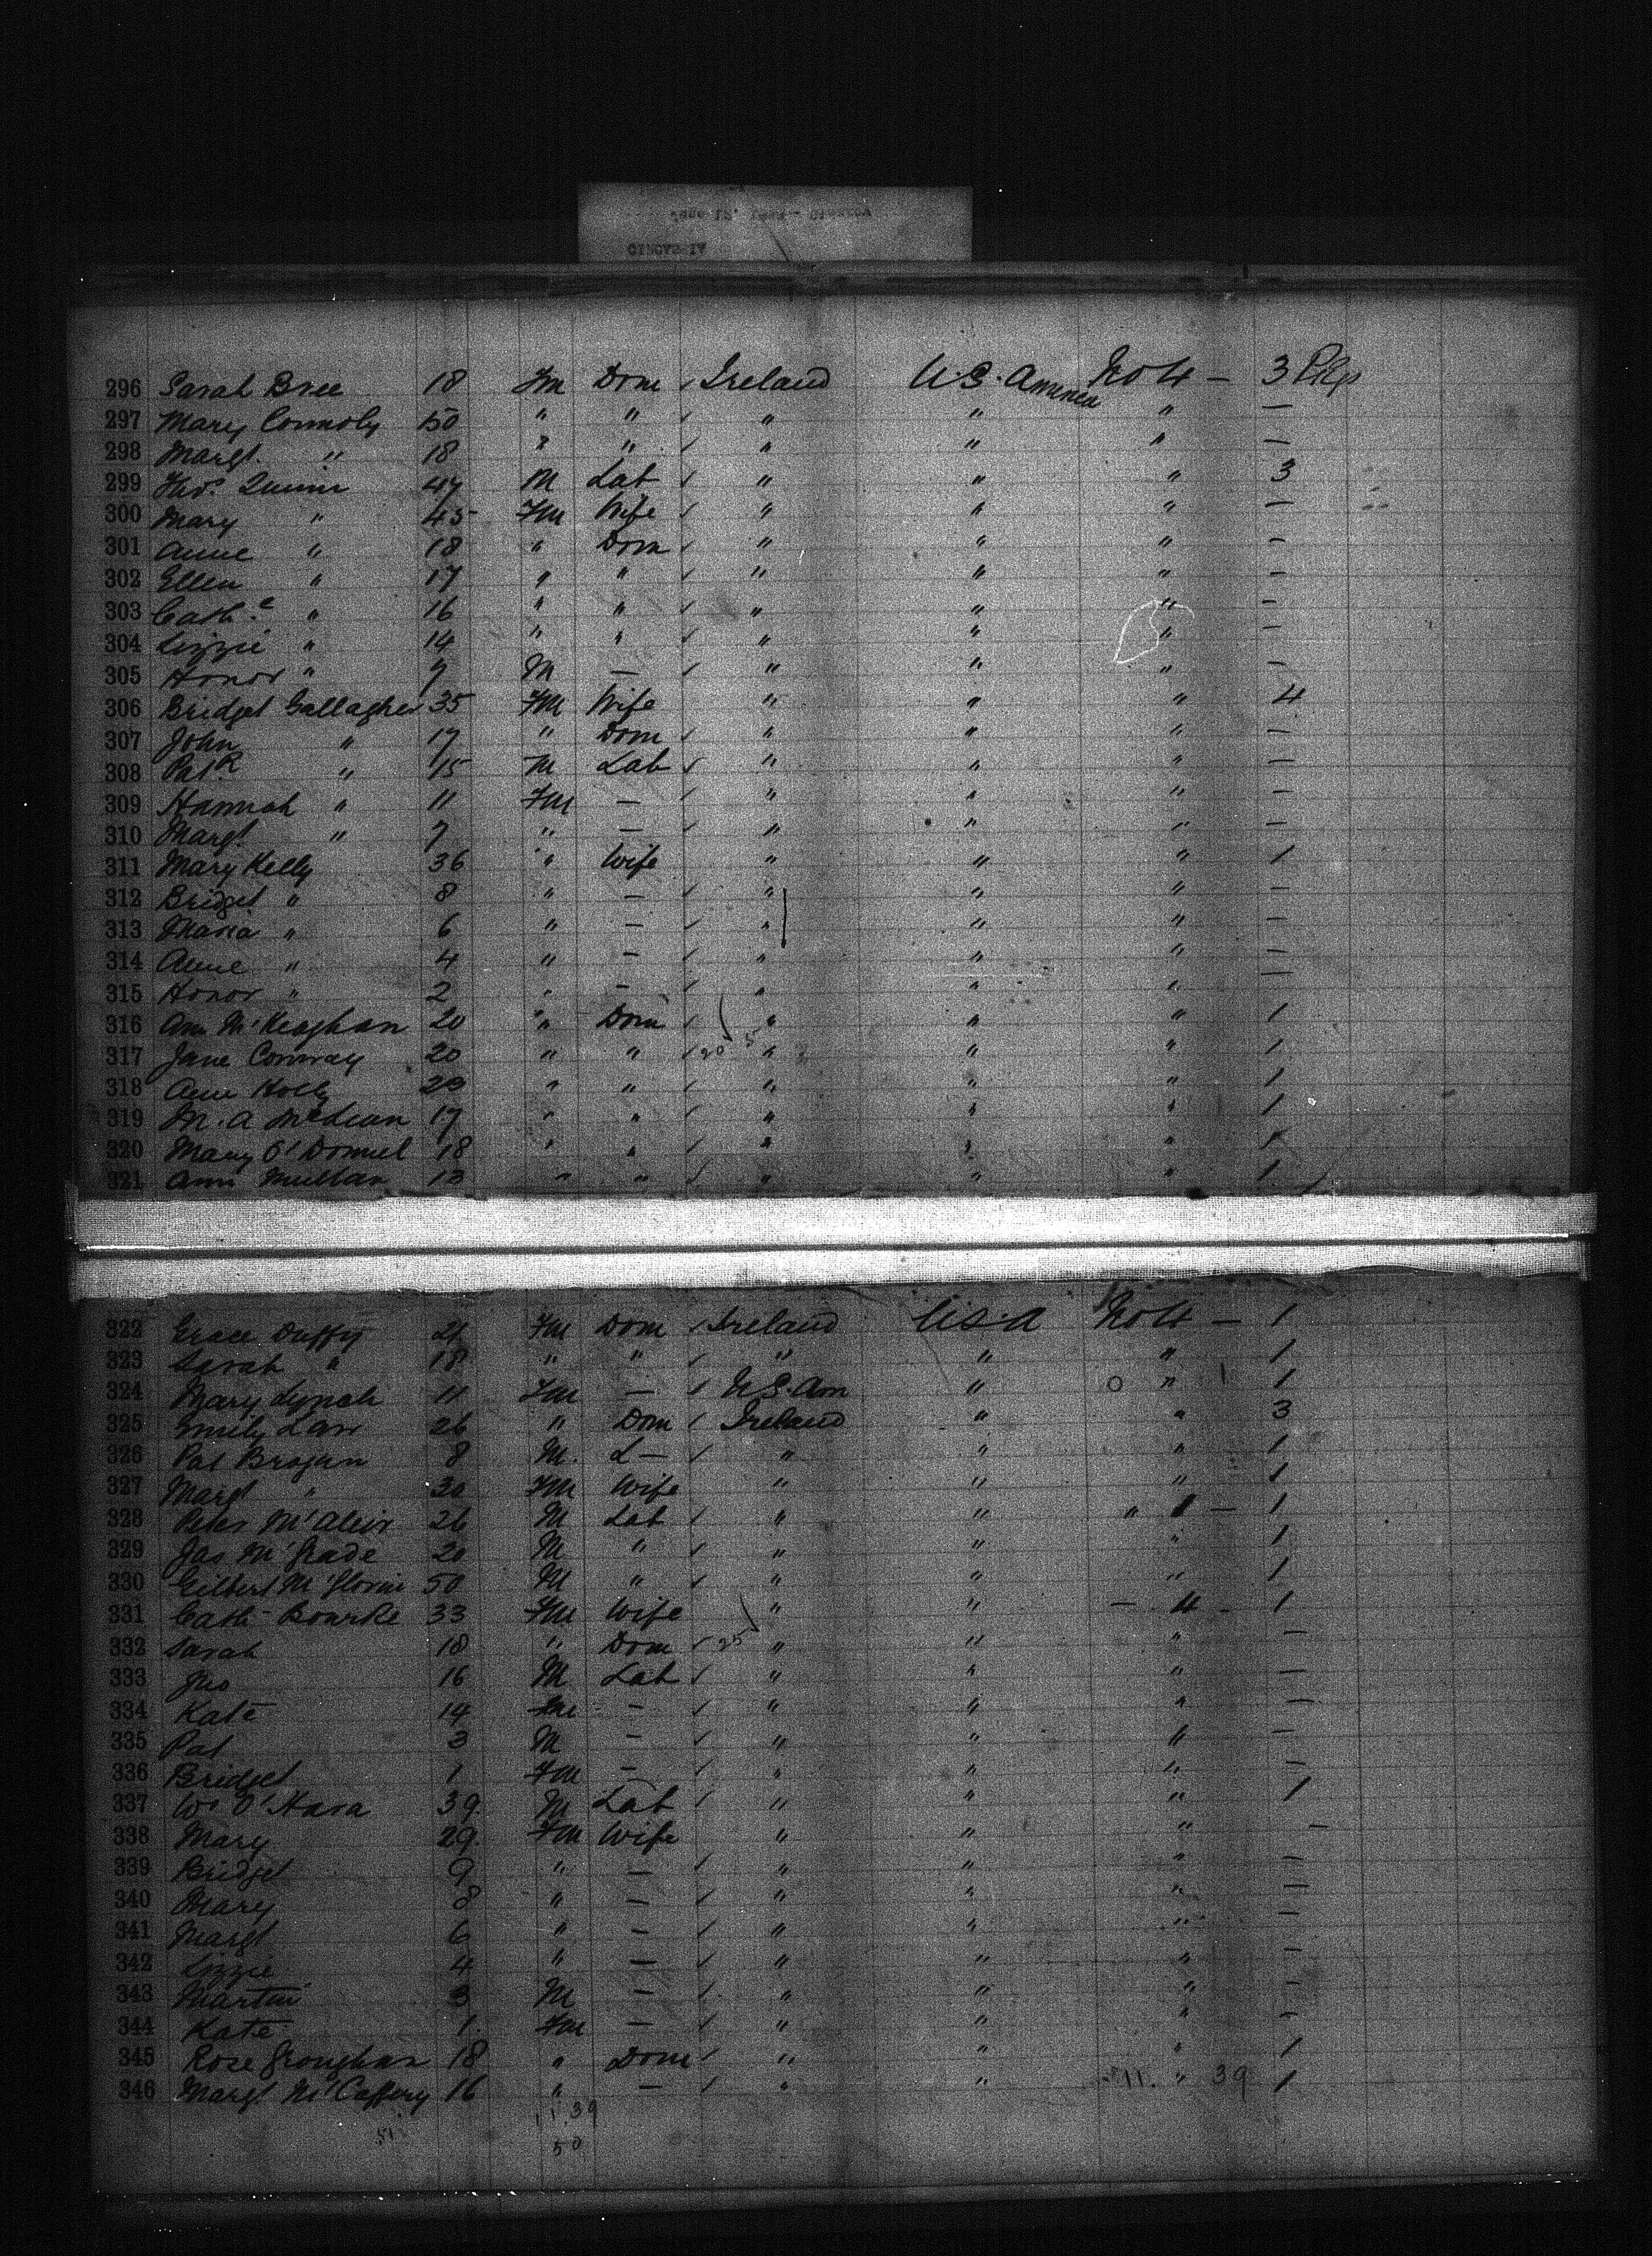 CIRCASSIA
June 12, - Glasgow
296 Sarah Bree 18 Fm Dom ✓ Ireland U.S. America No 4 — 3 Pkgs
297 Mary Connoly 50 " " ✓ " " " —
298 Margt. " 18 " " ✓ " " " —
299 Thos. Quinn 47 M Lab ✓ " " " 3
300 Mary " 45 Fm Wife ✓ " " " —
301 Anne " 18 " Dom ✓ " " " —
302 Ellen " 17 " " ✓ " " " —
303 Cath.e " 16 " " ✓ " " " —
304 Lizzie " 14 " " ✓ " " " —
305 Honor " 9 M — ✓ " " " —
306 Bridget Gallagher 35 Fm Wife " " " 4
307 John " 17 " Dom ✓ " " " —
308 Patk " 15 M Lab ✓ " " " —
309 Hannah " 11 Fm — ✓ " " " —
310 Margt. " 7 " — ✓ " " " —
311 Mary Kelly 36 " Wife " " " 1
312 Bridget " 8 " — ✓ " " " —
313 Maria " 6 " — ✓ " " " —
314 Anne " 4 " — ✓ " " " —
315 Honor " 2 " — ✓ " " " —
316 Ann McKeaghan 20 " Dom ✓ " " " 1
317 Jane Conway 20 " " ✓ 20 5 " " " 1
318 Ann Holly 23 " " ✓ " " " 1
319 M. A 17 " " ✓ " " " 1
320 Mary O'Donnel 18 " " ✓ " " " 1
321 Ann Mullan 13 " " ✓ " " " 1
322 Grace Duffy 21 Fm Dom ✓ Ireland U.S.A No 4 — 1
323 Sarah " 18 " " ✓ " " " 1
324 Mary Lynch 11 Fm — ✓ U.S. Am " O " 1 1
325 Emily Law 26 " Dom ✓ Ireland " " 3
326 Pat Brogan 8 M. L — ✓ " " " 1
327 Margt " 30 Fm Wife " " " 1
328 Peter McAleir 26 M Lab ✓ " " " 1 — 1
329 Jas McGrade 20 M " ✓ " " " 1
330 Gilbert McGlorin 50 M " ✓ " " " 1
331 Cath Bourke 33 Fm Wife " " — 4 - 1
332 Sarah 18 " Dom ✓ 25 " " " —
333 Jno 16 M Lab ✓ " " " —
334 Kate 14 Fm — ✓ " " " —
335 Pat 3 M — ✓ " " " —
336 Bridget 1 Fm — ✓ " " " —
337 Wm O'Hara 39 M Lab ✓ " " " 1
338 Mary 29 Fm Wife " " " —
339 Bridget 9 " — ✓ " " " —
340 Mary 8 " — ✓ " " " —
341 Margt 6 " — ✓ " " " —
342 Lizzie 4 " — ✓ " " " —
343 Martin 3 M — ✓ " " " —
344 Kate 1 Fm — ✓ " " " —
345 Rose Groughan 18 " Dom ✓ " " " 1
346 Margt. McCaffery 16 " — ✓ " " 11. " 39 1
51 11.39
50